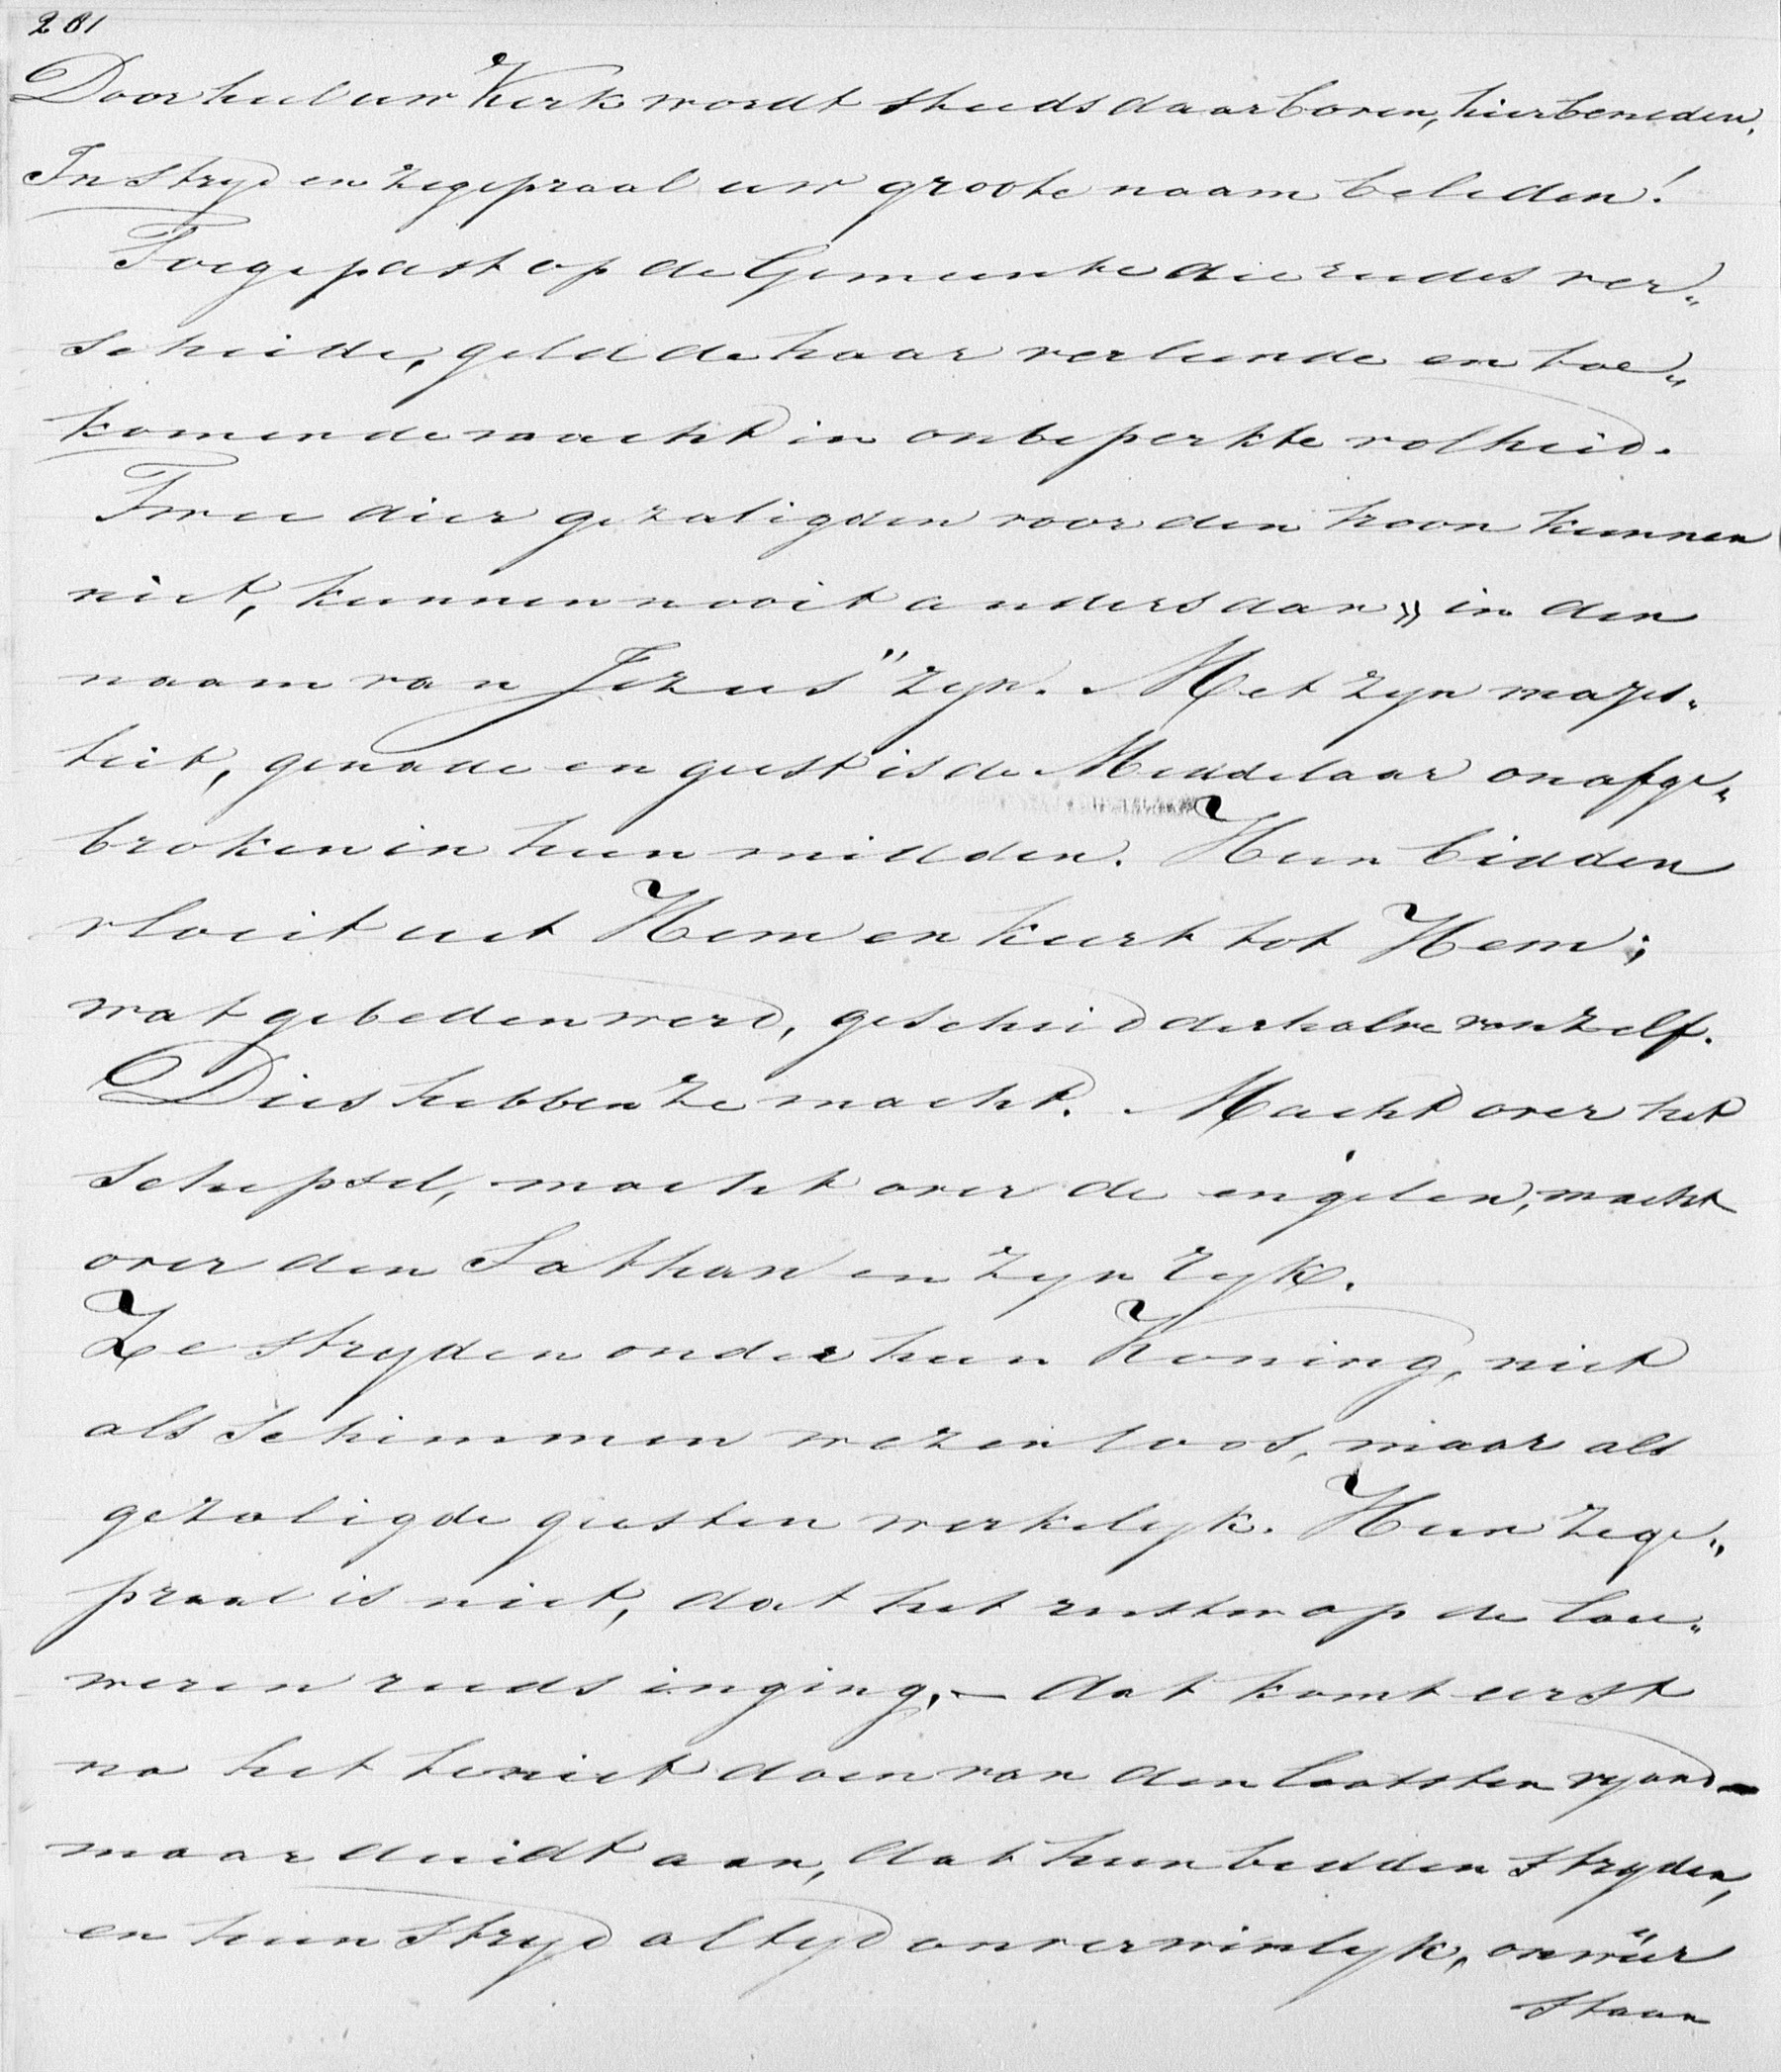 281
Door heel uw Kerk wordt steeds daarboven, hierbeneden,
In stryd en zegepraal uw groote naam beleden!
Toegepast op de Gemeente die reeds ver„
scheidde, geld de haar verleende en toe„
komende macht in onbeperkte volheid.
Twee dier gezaligden voor den troon kunnen
niet, kunnen nooit anders dan „in den
naam van Jezus" zyn. Met zyn majes„
teit, genade en geest is de Middelaar onafge„
broken in hun midden. Hun bidden
vloeit uit Hem en keert tot Hem;
wat gebeden werd, geschied derhalve vanzelf.
Dies hebben ze macht. Macht over het
schepsel, macht over de engelen, macht
over den Sathan en zyn ryk.
Ze stryden onder hun Koning, niet
als schimmen wezenloos, maar als
gezaligde geesten werkelyk. Hun zege„
praal is niet, dat het rusten op de lau„
weren reeds inging, — dat komt eerst
na het teniet doen van den laatsten vyand —
maar duidt aan, dat hun bidden stryden,
en hun stryd altyd onverwinlyk, onweer
staan